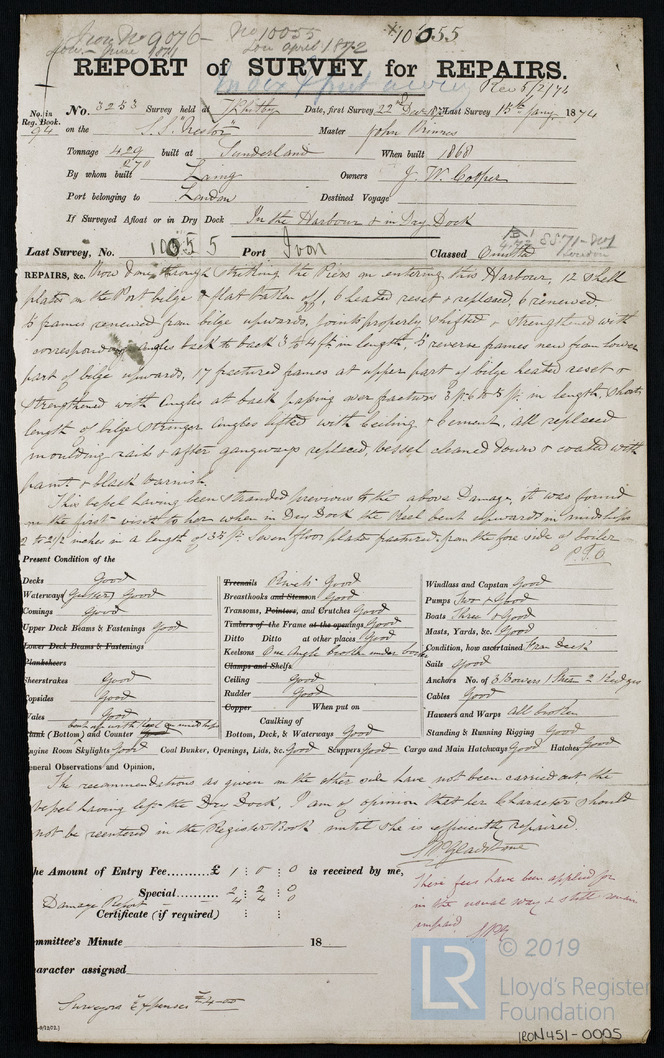 Iron No 9076- No 10055 *10055
Lon April 1872
REPORT of SURVEY for REPAIRS.
Rec 5/2/74
No. in Reg. Book. 94
No. 3253 Survey held at Whitby Date, first Survey 22nd Dec Last Survey 15th Jany 1874
on the S.S. "Nestor" Master John
Tonnage 429 built at Sunderland When built 1868
270
By whom built Laing Owners J. W. Cooper
Port belonging to London Destined Voyage
If Surveyed Afloat or in Dry Dock In the Harbour & in Dry Dock
Last Survey, No. 10055 Port Iron Classed
8871-
London
REPAIRS, &c. Now done through Striking the Piers on entering this Harbour, 12 shell
plates in the Port bilge & flat taken off, 6 heated reset & replaced, 6 renewed
frames renewed from bilge upwards, joints properly shifted & strengthened with
corresponding angles back to back 3 to 4 ft in length, reverse frames new from lower
part of bilge upwards, 17 fractured frames at upper part of bilge heated reset &
strengthened with Angles at back passing over fracture in length, short
length of bilge Stringer Angles lifted with Ceiling & Cement, all replaced
moulding rails & after gangways replaced, vessel cleaned down & coated with
paint & black varnish.
This vessel having been stranded previous to the above Damage, it was found
on the first visit to her when in Dry Dock the Keel bent upwards in midships
2 to 2 1/2 inches in a length of 35 ft. Seven floor plates fractured from the fore side of boiler
P.T.O
Present Condition of the
Decks Good
Waterways Gutters Good
Comings Good
Upper Deck Beams & Fastenings Good
Lower Deck Beams & Fastenings
Planksheers
Sheerstrakes Good
Topsides Good
Wales Good
bent up with Keel in midships
Plank (Bottom) and Counter Good
Treenails Rivets Good
Breasthooks and Stemson Good
Transoms, Pointers, and Crutches Good
Timbers of the Frame at the openings Good
Ditto Ditto at other places Good
Keelsons One Angle broken under boiler
Clamps and Shelfs
Ceiling Good
Rudder Good
Copper When put on
Caulking of
Bottom, Deck, & Waterways Good
Windlass and Capstan Good
Pumps Two & Good
Boats Three & Good
Masts, Yards, &c. Good
Condition, how ascertained From Deck
Sails Good
Anchors No. of 3 Bowers 1 Stream 2 Kedges
Cables Good
Hawsers and Warps All broken
Standing & Running Rigging Good
ngine Room Skylights Good Coal Bunker, Openings, Lids, &c. Good Scuppers Good Cargo and Main Hatchways Good Hatches Good
eneral Observations and Opinion,
The recommendations as given on the other side have not been carried out, the
vessel having left the Dry Dock, I am of opinion that her Character should
not be reentered in the Register Book until she is efficiently repaired.
Gladstone
he Amount of Entry Fee.......... £ 1 : 0 : 0 is received by me,
Special.......... 2 : 2 : 0
Damage Report 4 4 0
Certificate (if required)
These fees have been applied for
in the usual way & still remain
unpaid
mmittee's Minute 18
aracter assigned
Surveyors Expenses £4-0-0
© 2019
LR
Lloyd's Register
Foundation
IRON451-0005